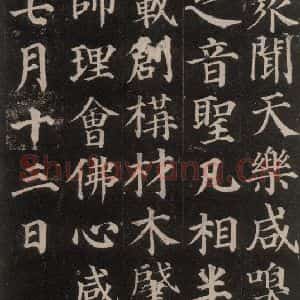 衆聞天樂咸嗅
之音聖凡相半
載創構材木肇
師理會佛心感
七月十三日
Shufawang.CN